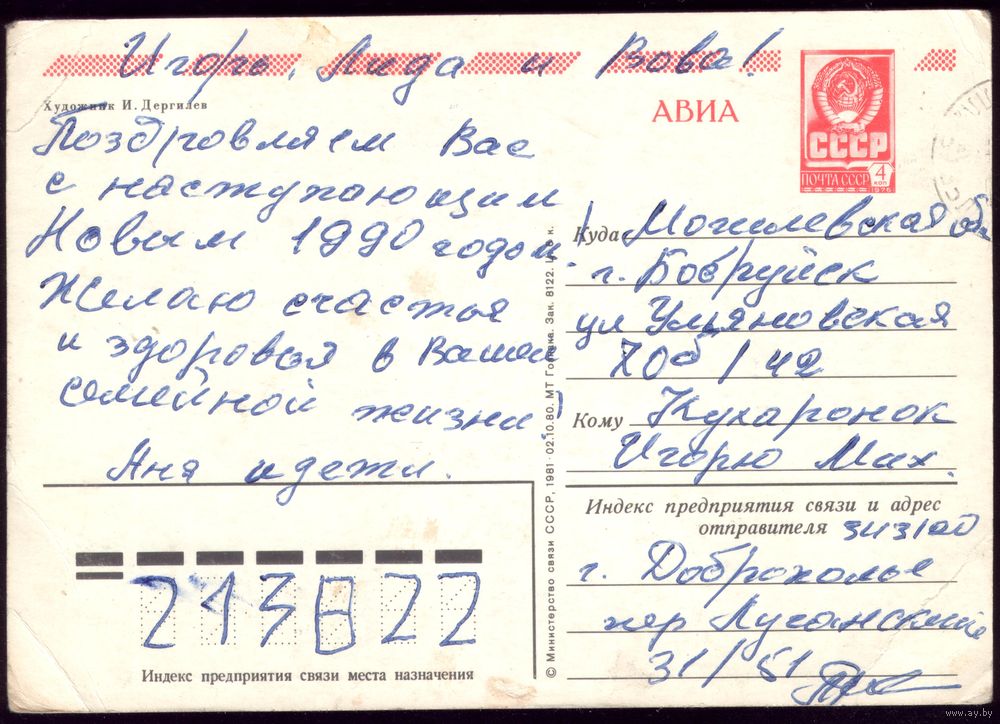 Игорь, Лида и Вова!
Художник И. Дергилев
Поздровляем Вас
с наступающим
Новым 1990 годом.
Желаю счастья
и здоровья в Вашей
семейной жизни
Аня и дети.
АВИА
СССР
ПОЧТА СССР 4 КОП
1976
Куда Могилевская об
г. Бобруйск
ул Ульяновская
70б / 42
Кому Кухаронок
Игорю Мих.
© Министерство связи СССР, 1981 · 02.10.80. МТ Гознака. Зак. 8122. Ц. 6 к.
Индекс предприятия связи и адрес
отправителя 343100
г. Доброполье
пер Луганский
31/51
213822
Индекс предприятия связи места назначения
www.ay.by